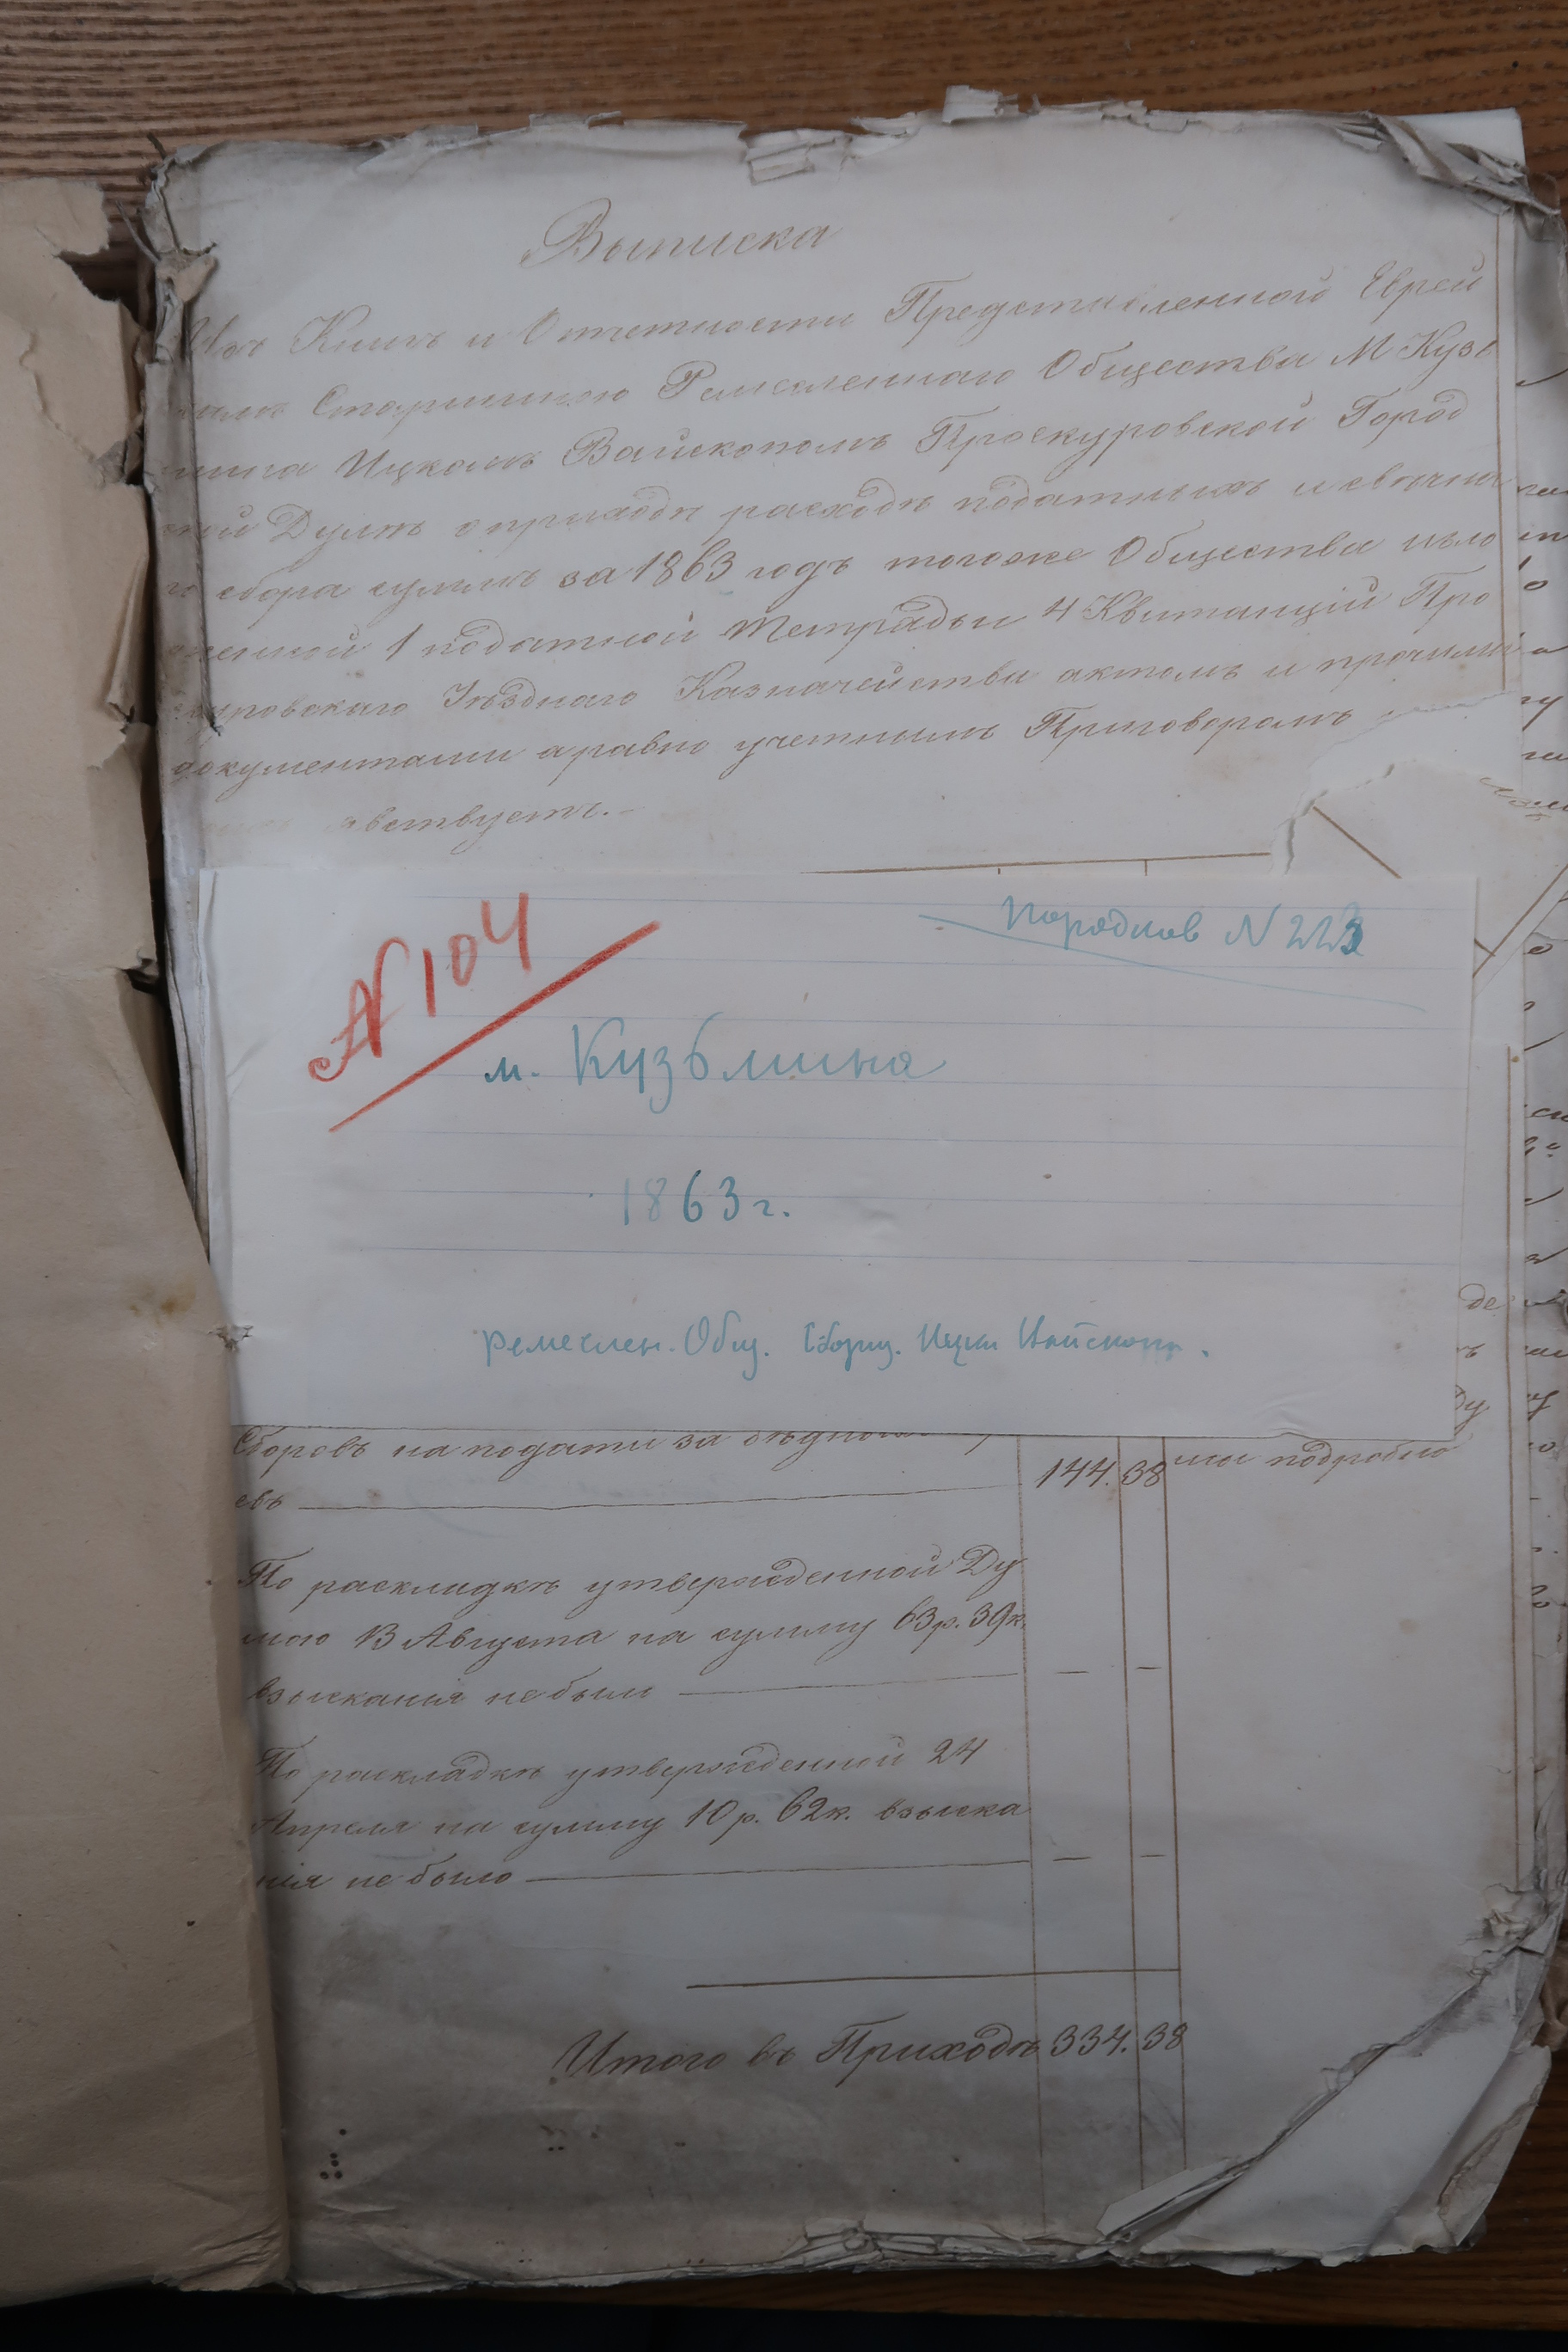 Выписка
Изъ Книгъ и Отчетности Представленной Еврей
скимъ Старшиною Ремесленнаго Общества М Кузь
мина Ицкомъ Вайскопомъ Проскуровской Город
ской Думѣ о приходѣ расходѣ податныхъ и свѣчна
го сбора суммъ за 1863 годъ тогоже Общества изло
женной 1 податной тетрадьи 4 Квитанцій Про
скуровскаго Уѣзднаго Казначейства актомъ и прочими
документами а равно учетнымъ Приговоромъ
явствуетъ.-
N 104
порядков N 223
м. Кузьмина
1863 г.
ремеслен. Общ. Сборщ. Ицки
Сборовъ на подати за бѣдно
евъ 144. 38 подробно
По раскладкѣ утвержденной Ду
мою 13 Августа на сумму 63 р. 39 к.
взысканія не было — —
По раскладкѣ утвержденной 24
Апреля на сумму 10 р. 62 к. взыска
нія не было — —
Итого въ Приходѣ 334. 38